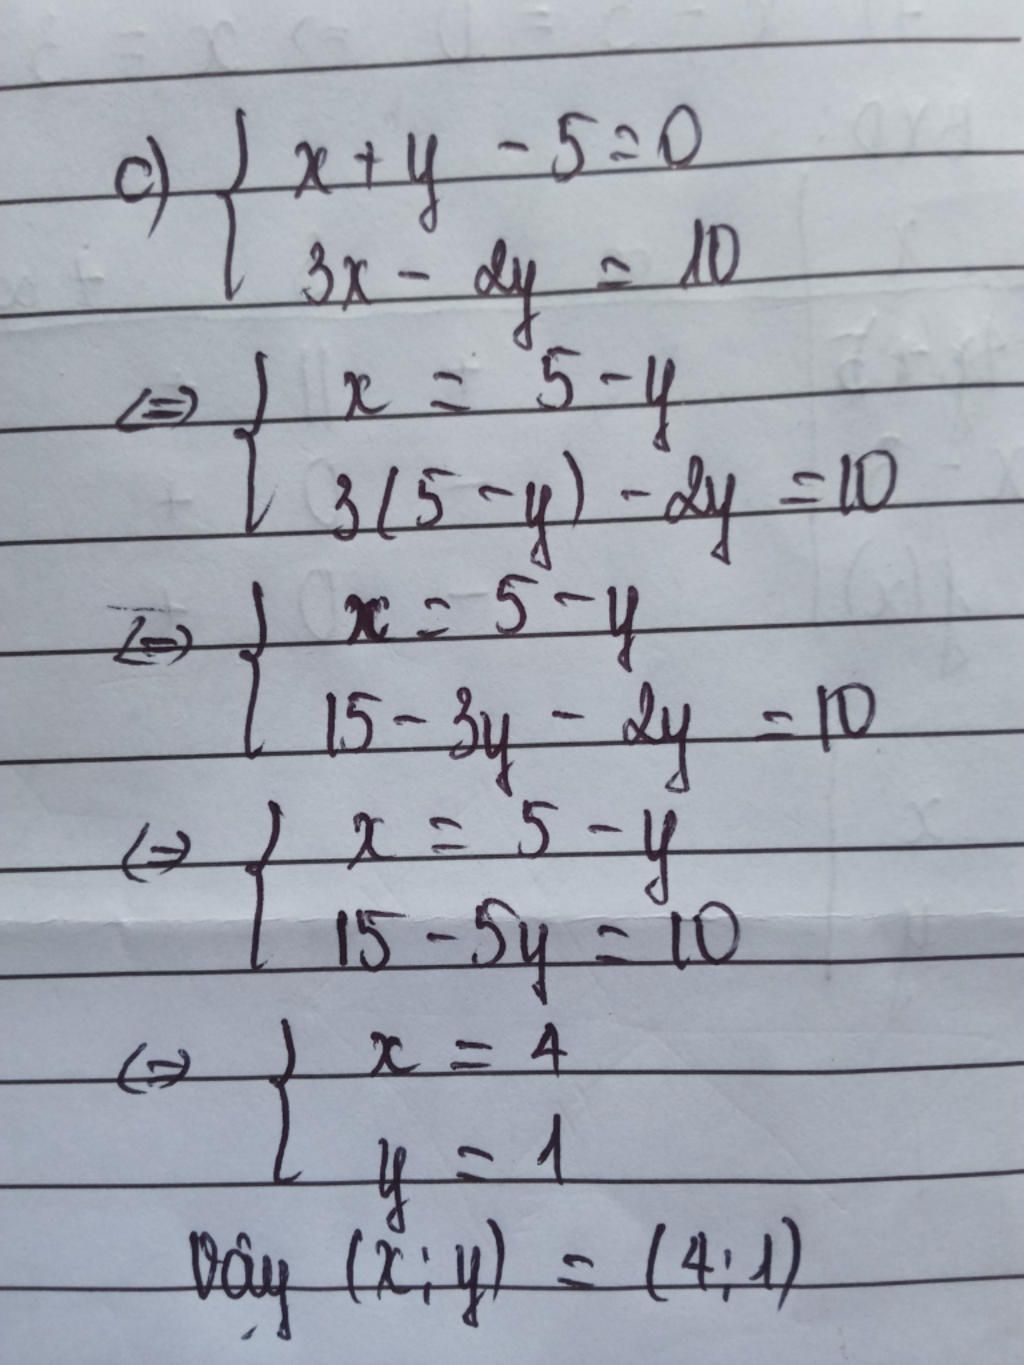 c) { x + y - 5 = 0
3x - 2y = 10
<=> { x = 5 - y
3(5 - y) - 2y = 10
<=> { x = 5 - y
15 - 3y - 2y = 10
<=> { x = 5 - y
15 - 5y = 10
<=> { x = 4
y = 1
Vậy (x; y) = (4; 1)